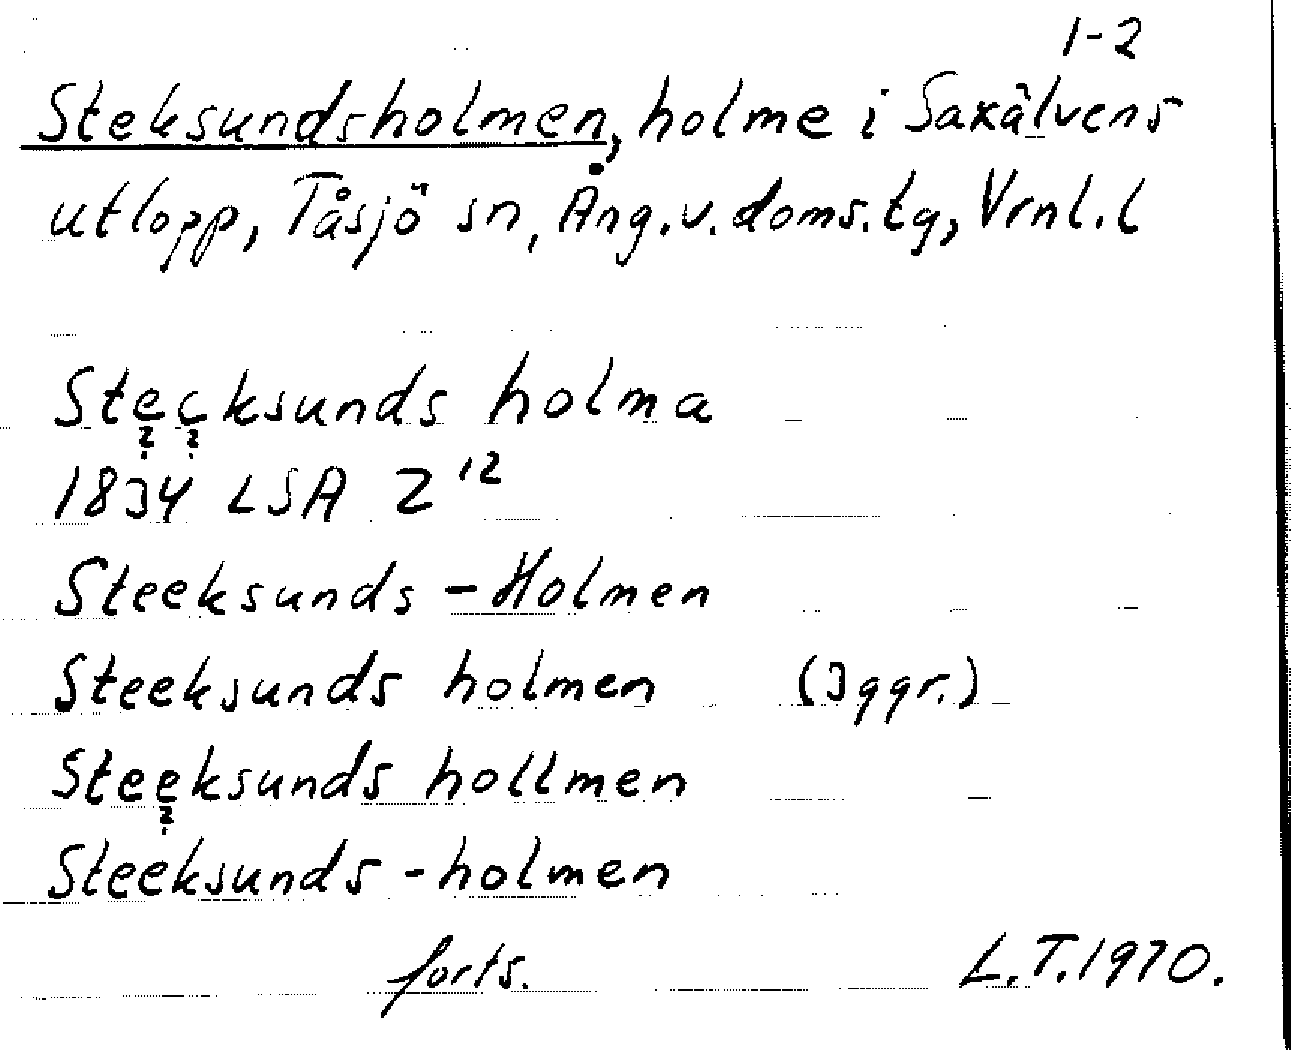 1-2
Steksundsholmen, holme i Saxälvens
utlopp, Tåsjö sn, Ång.v.doms.tg, Vrnl.l
Stecksunds holma
? ?
1834 LSA Z 12
Steeksunds - Holmen
Steeksunds holmen (3ggr.)
Steeksunds hollmen
?
Steeksunds - holmen
forts. L.T.1970.